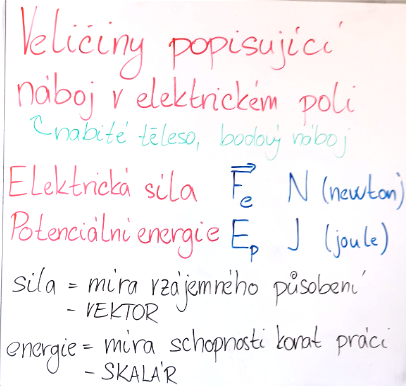 Veličiny popisující
náboj v elektrickém poli
nabité těleso, bodový náboj
Elektrická síla F⃗e N (newton)
Potenciální energie Ep J (joule)
síla = míra vzájemného působení
- VEKTOR
energie = míra schopnosti konat práci
- SKALÁR